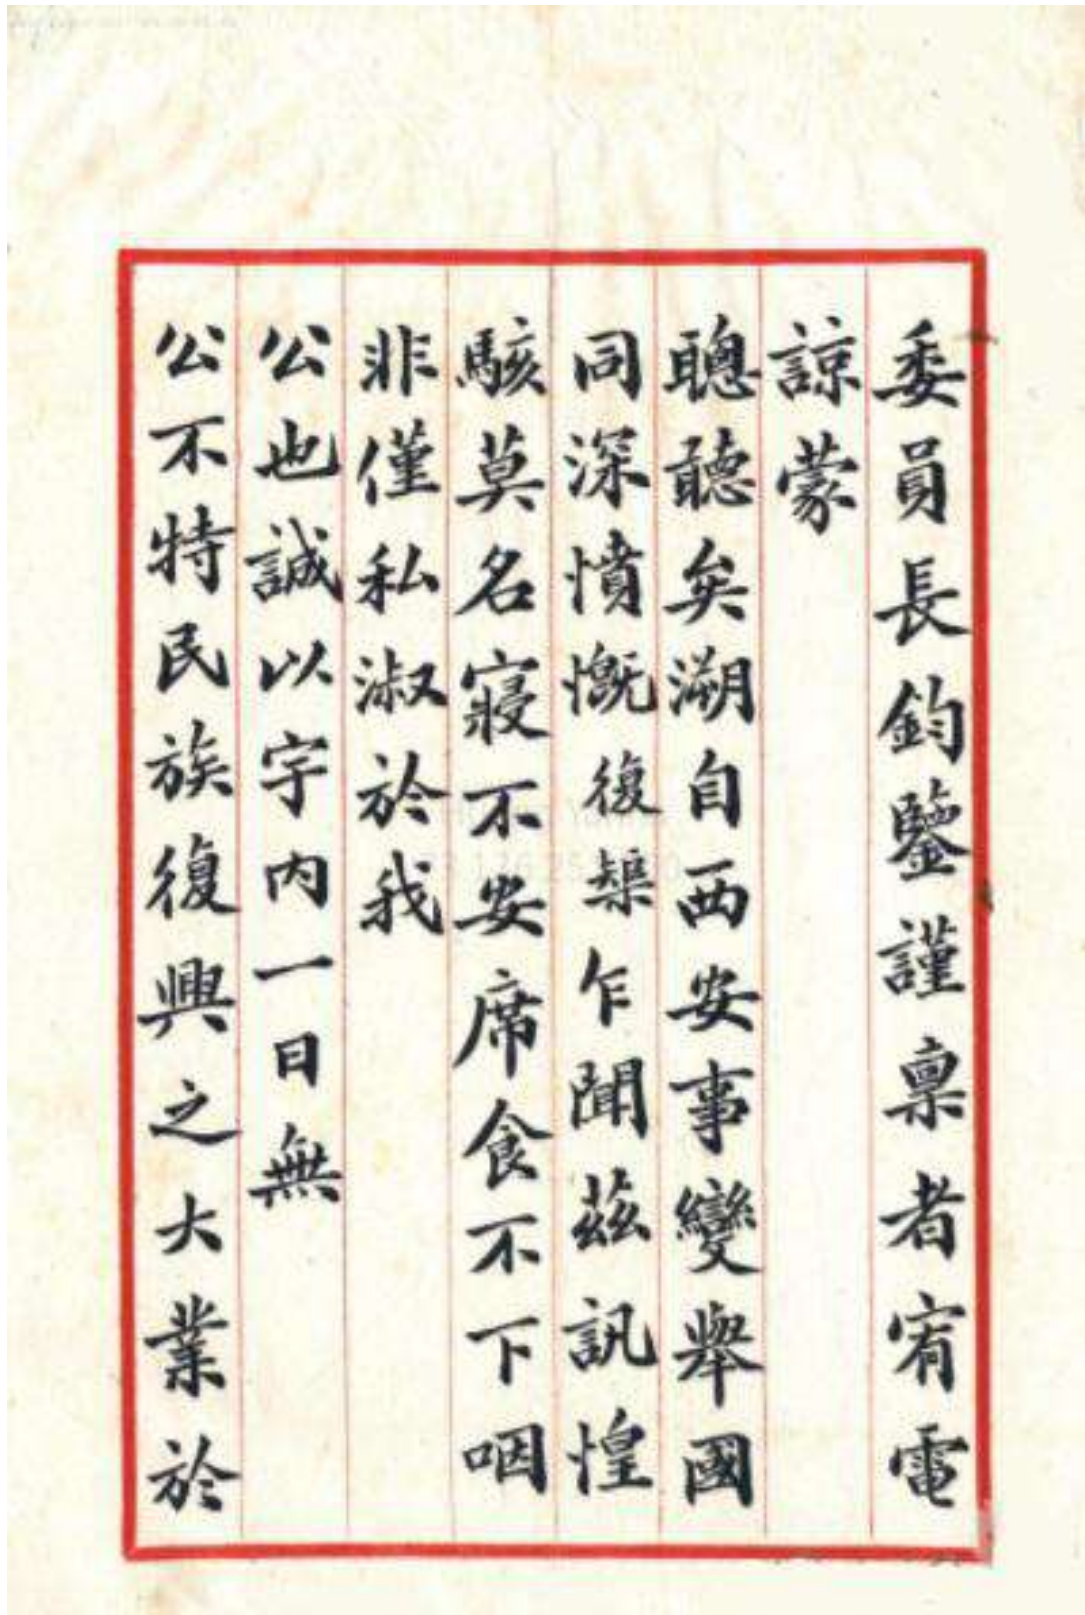 委員長鈞鑒謹稟者宥電
諒蒙
聰聽矣溯自西安事變舉國
同深憤慨復榘乍聞茲訊惶
駭莫名寢不安席食不下咽
非僅私淑於我
公也誠以宇內一日無
公不特民族復興之大業於